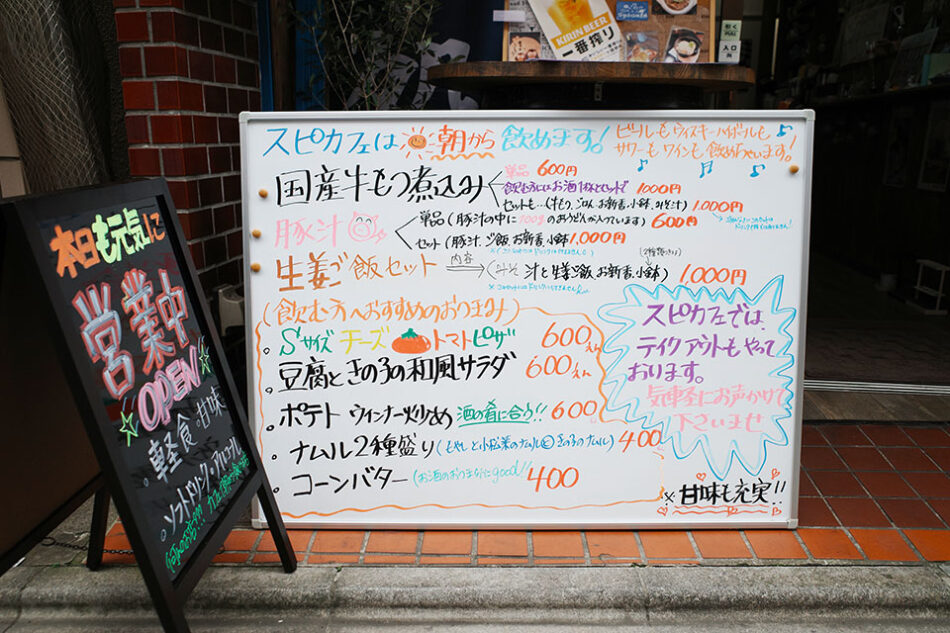 KIRIN BEER
一番搾り
入口
本日も元気に
営業中
OPEN!
軽食・甘味
ソフトドリンク・アルコール
スピカフェは朝から飲めます!
ビールもウイスキーハイボールも
サワーもワインも飲めちゃいます!
国産牛もつ煮込み
単品 600円
飲む方にはお酒1杯とセットで 1000円
セットも…(牛もつ、ごはん、お新香、小鉢、みそ汁) 1,000円
豚汁
単品(豚汁の中に100gのおうどんが入っています) 600円
セット(豚汁、ご飯、お新香、小鉢) 1,000円
生姜ご飯セット 内容 (みそ汁と生姜ご飯、お新香、小鉢) 1,000円
(飲む方へおすすめのおつまみ)
・Sサイズチーズトマトピザ 600えん
・豆腐ときの子の和風サラダ 600えん
・ポテトウィンナー炒め 酒の肴に合う!! 600
・ナムル2種盛り(もやしと小松菜のナムル きの子のナムル) 400
・コーンバター(お酒のおつまみにgood!! 400
スピカフェでは、
テイクアウトもやって
おります。
気軽にお声かけて
下さいませ
※甘味も充実!!